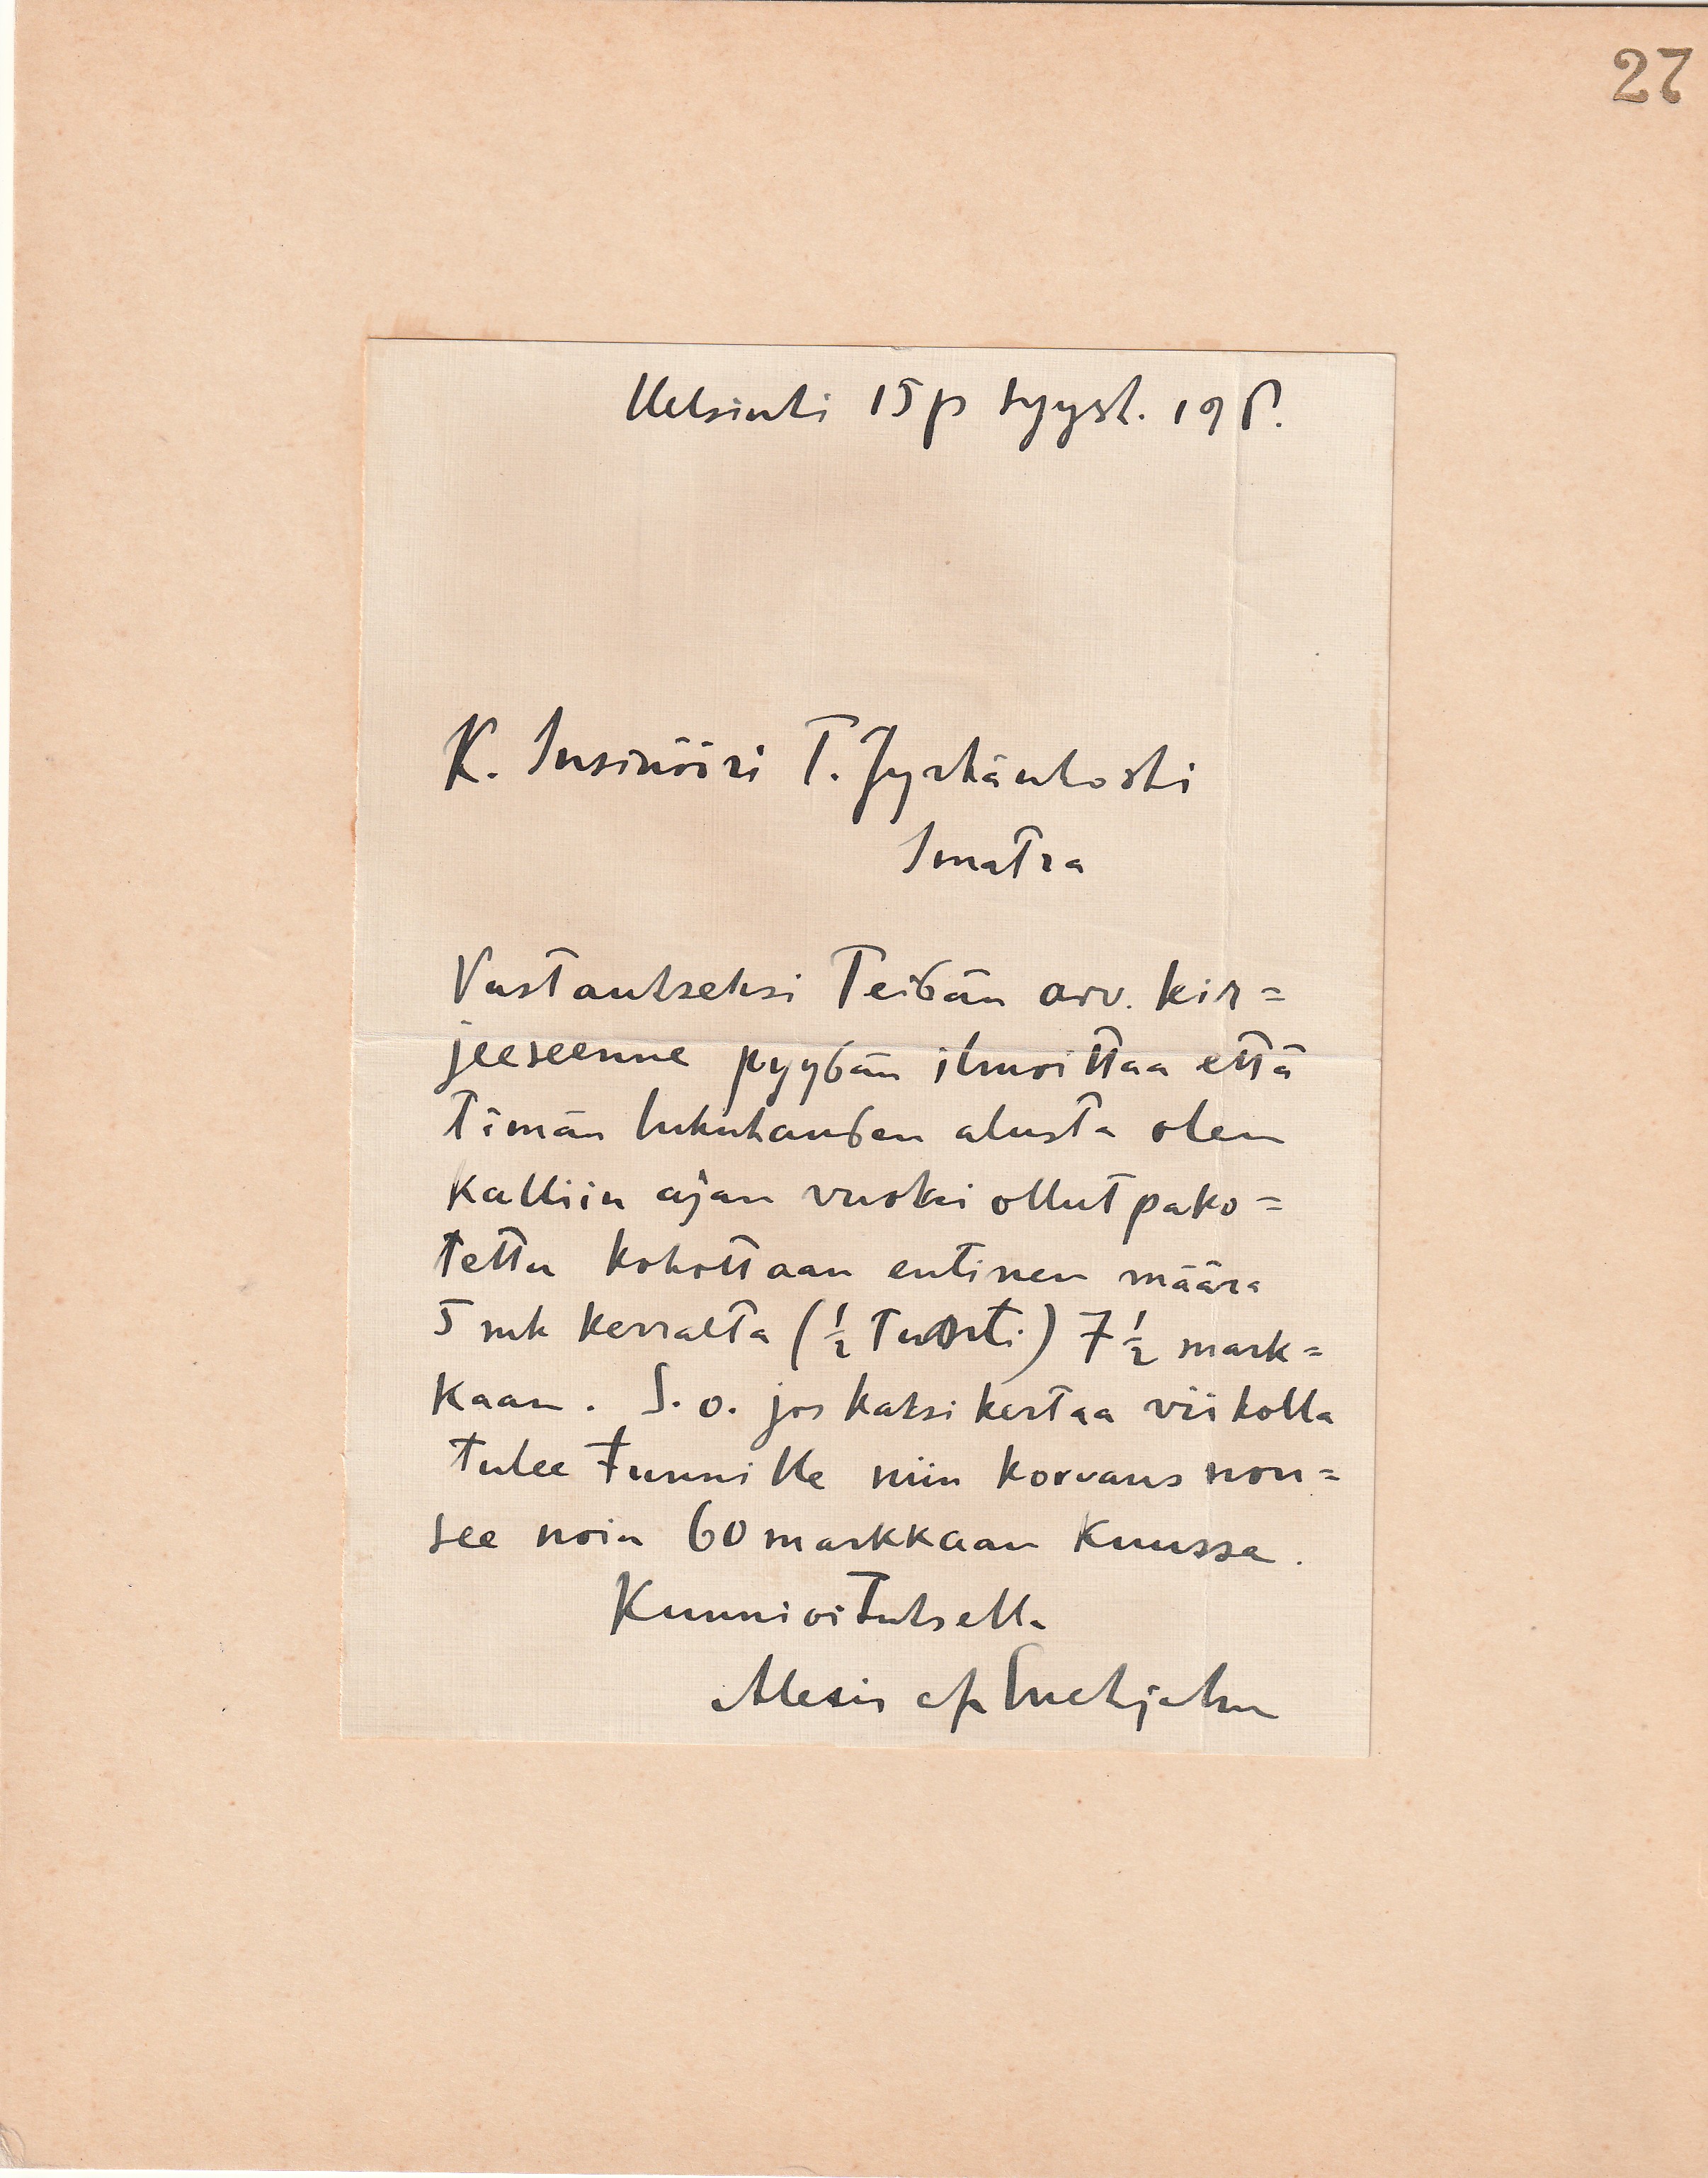 27
Helsinki 15 p syysk.
K. Insinööri T. Jyrkänkoski
Imatra
Vastaukseksi Teidän arv. kir=
jeeseenne pyydän ilmoittaa että
Tämän lukukauden alusta olen
kalliin ajan vuoksi ollut pako=
tettu kohottaan entinen määrä
5 mk kerralta (½ tunti) 7 ½ mark=
kaan. S. o. jos kaksi kertaa viikolla
tulee tunnille niin korvaus nou=
see noin 60 markkaan kuussa.
Kunnioituksella
Alexis af Enehjelm